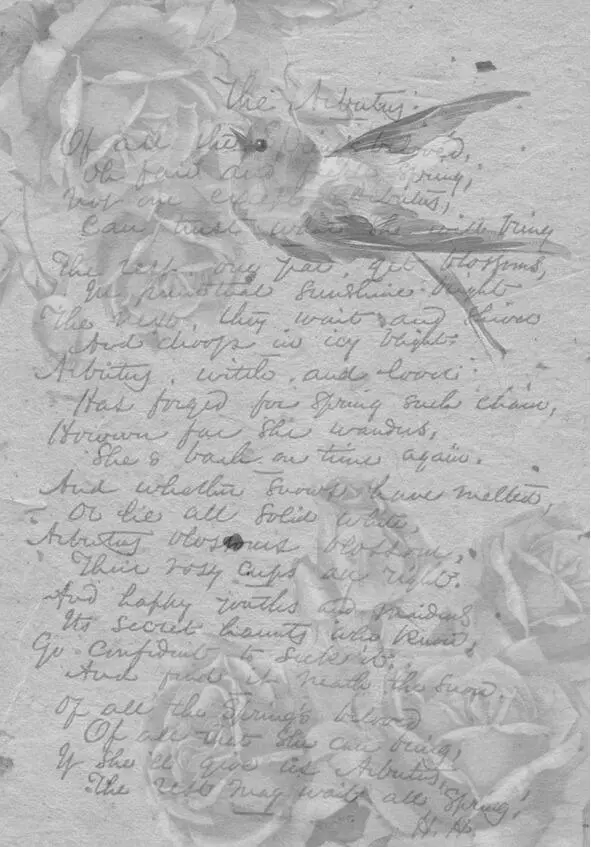 The Arbutus.
Of all the Spring's beloved,
Oh fair and Spring,
Not one except Arbutus,
Can trust what she will bring
The rest, one par, get blossoms,
In sunshine bright
The next, they wait and shiver
And droop in icy blight.
Arbutus, and
Has forged for Spring such chain,
However far she wanders,
She's back on time again.
And whether snows have melted,
Or lie all solid white,
Arbutus blossoms blossom,
Their rosy cups all right.
And happy youths and maidens
Its secret haunts who know,
Go confident to seek it,
And find it neath the snow.
Of all the Spring's beloved
Of all that she can bring,
If she'll give us Arbutus,
The rest may wait all Spring!
H. H.